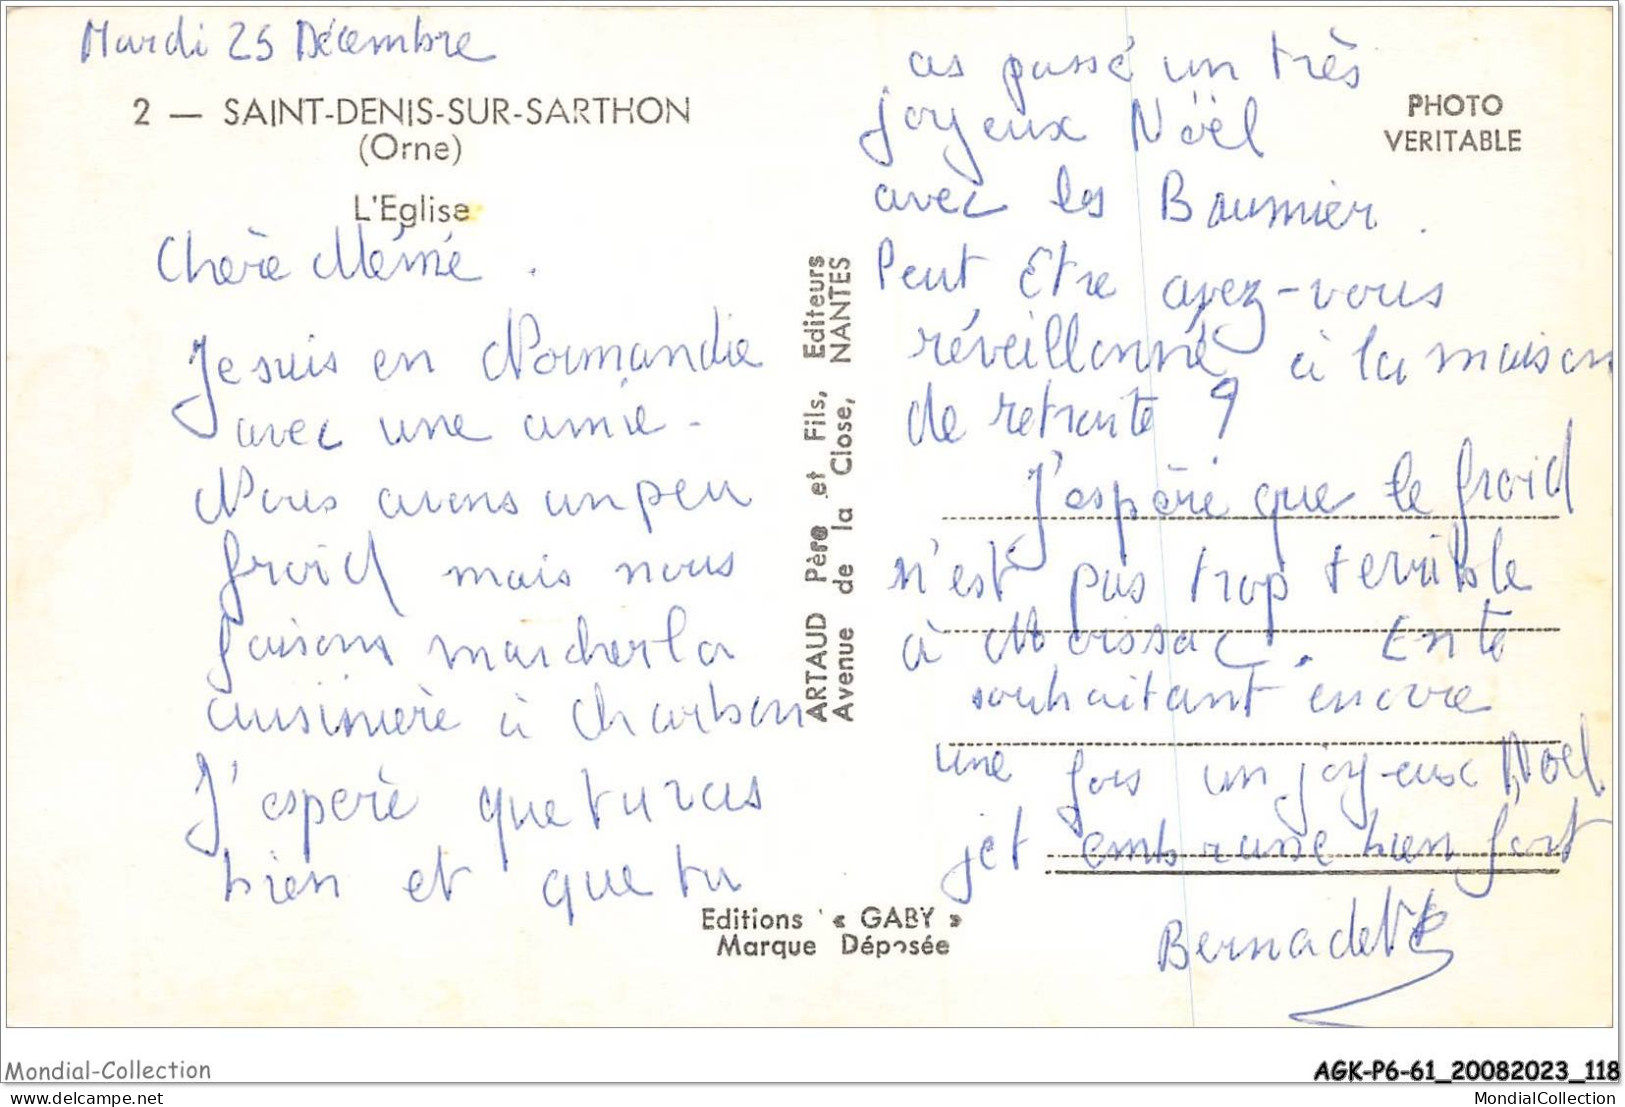 Mardi 25 Décembre
2 — SAINT-DENIS-SUR-SARTHON
(Orne)
L'Eglise
Chère Mémé.
Je suis en Normandie
avec une amie.
Nous avons un peu
froid mais nous
faisons marcher la
cuisinière à charbon
J'espère que tu vas
bien et que tu
as passé un très
joyeux Noël
avec les Baumier.
Peut Etre avez-vous
réveillonné à la maison
de retraite ?
J'espère que le froid
n'est pas trop terrible
à Moissac. En te
souhaitant encore
une fois un joyeux Noël
je t embrasse bien fort
Bernadette
PHOTO
VERITABLE
ARTAUD Père et Fils, Editeurs
Avenue de la Close, NANTES
Editions « GABY »
Marque Déposée
Mondial-Collection
AGK-P6-61_20082023_118
mondial-collection.net
MondialCollection